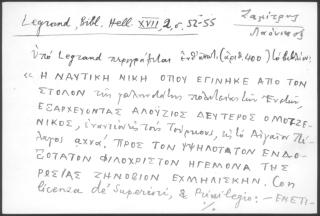 Legrand, Bibl. Hell. XVII, 2, σ. 52-55
Ζαμίτρης
Λαόνικος
Ὑπὸ Legrand περιγράφεται ἐνθ' (ἀριθ. 400) τὸ βιβλίον:
« Η ΝΑΥΤΙΚΗ ΝΙΚΗ ΟΠΟΥ ΕΓΙΝΗΚΕ ΑΠΟ ΤΟΝ
ΣΤΟΛΟΝ τῆς γαληνοτάτης πολιτείας τῶν Ενετῶν,
ΕΞΑΡΧΕΥΟΝΤΑΣ ΑΛΟΥΣΙΟΣ ΔΕΥΤΕΡΟΣ Ο ΜΟΤΖΕ-
ΝΙΚΟΣ, ἐναντίον εἰς τοὺς Τούρκους, εἰς τὸ Αἰγαῖον Πέ-
λαγος ΠΡΟΣ ΤΟΝ ΥΨΗΛΟΤΑΤΟΝ ΕΝΔΟ-
ΞΟΤΑΤΟΝ ΦΙΛΟΧΡΙΣΤΟΝ ΗΓΕΜΟΝΑ ΤΗΣ
ΡΩΣΙΑΣ ΖΗΝΟΒΙΟΝ ΕΧΜΗΛΙΣΚΗΝ. Con
licenza de' Superiori, & Privilegio: — ΕΝΕΤΙ-
./.